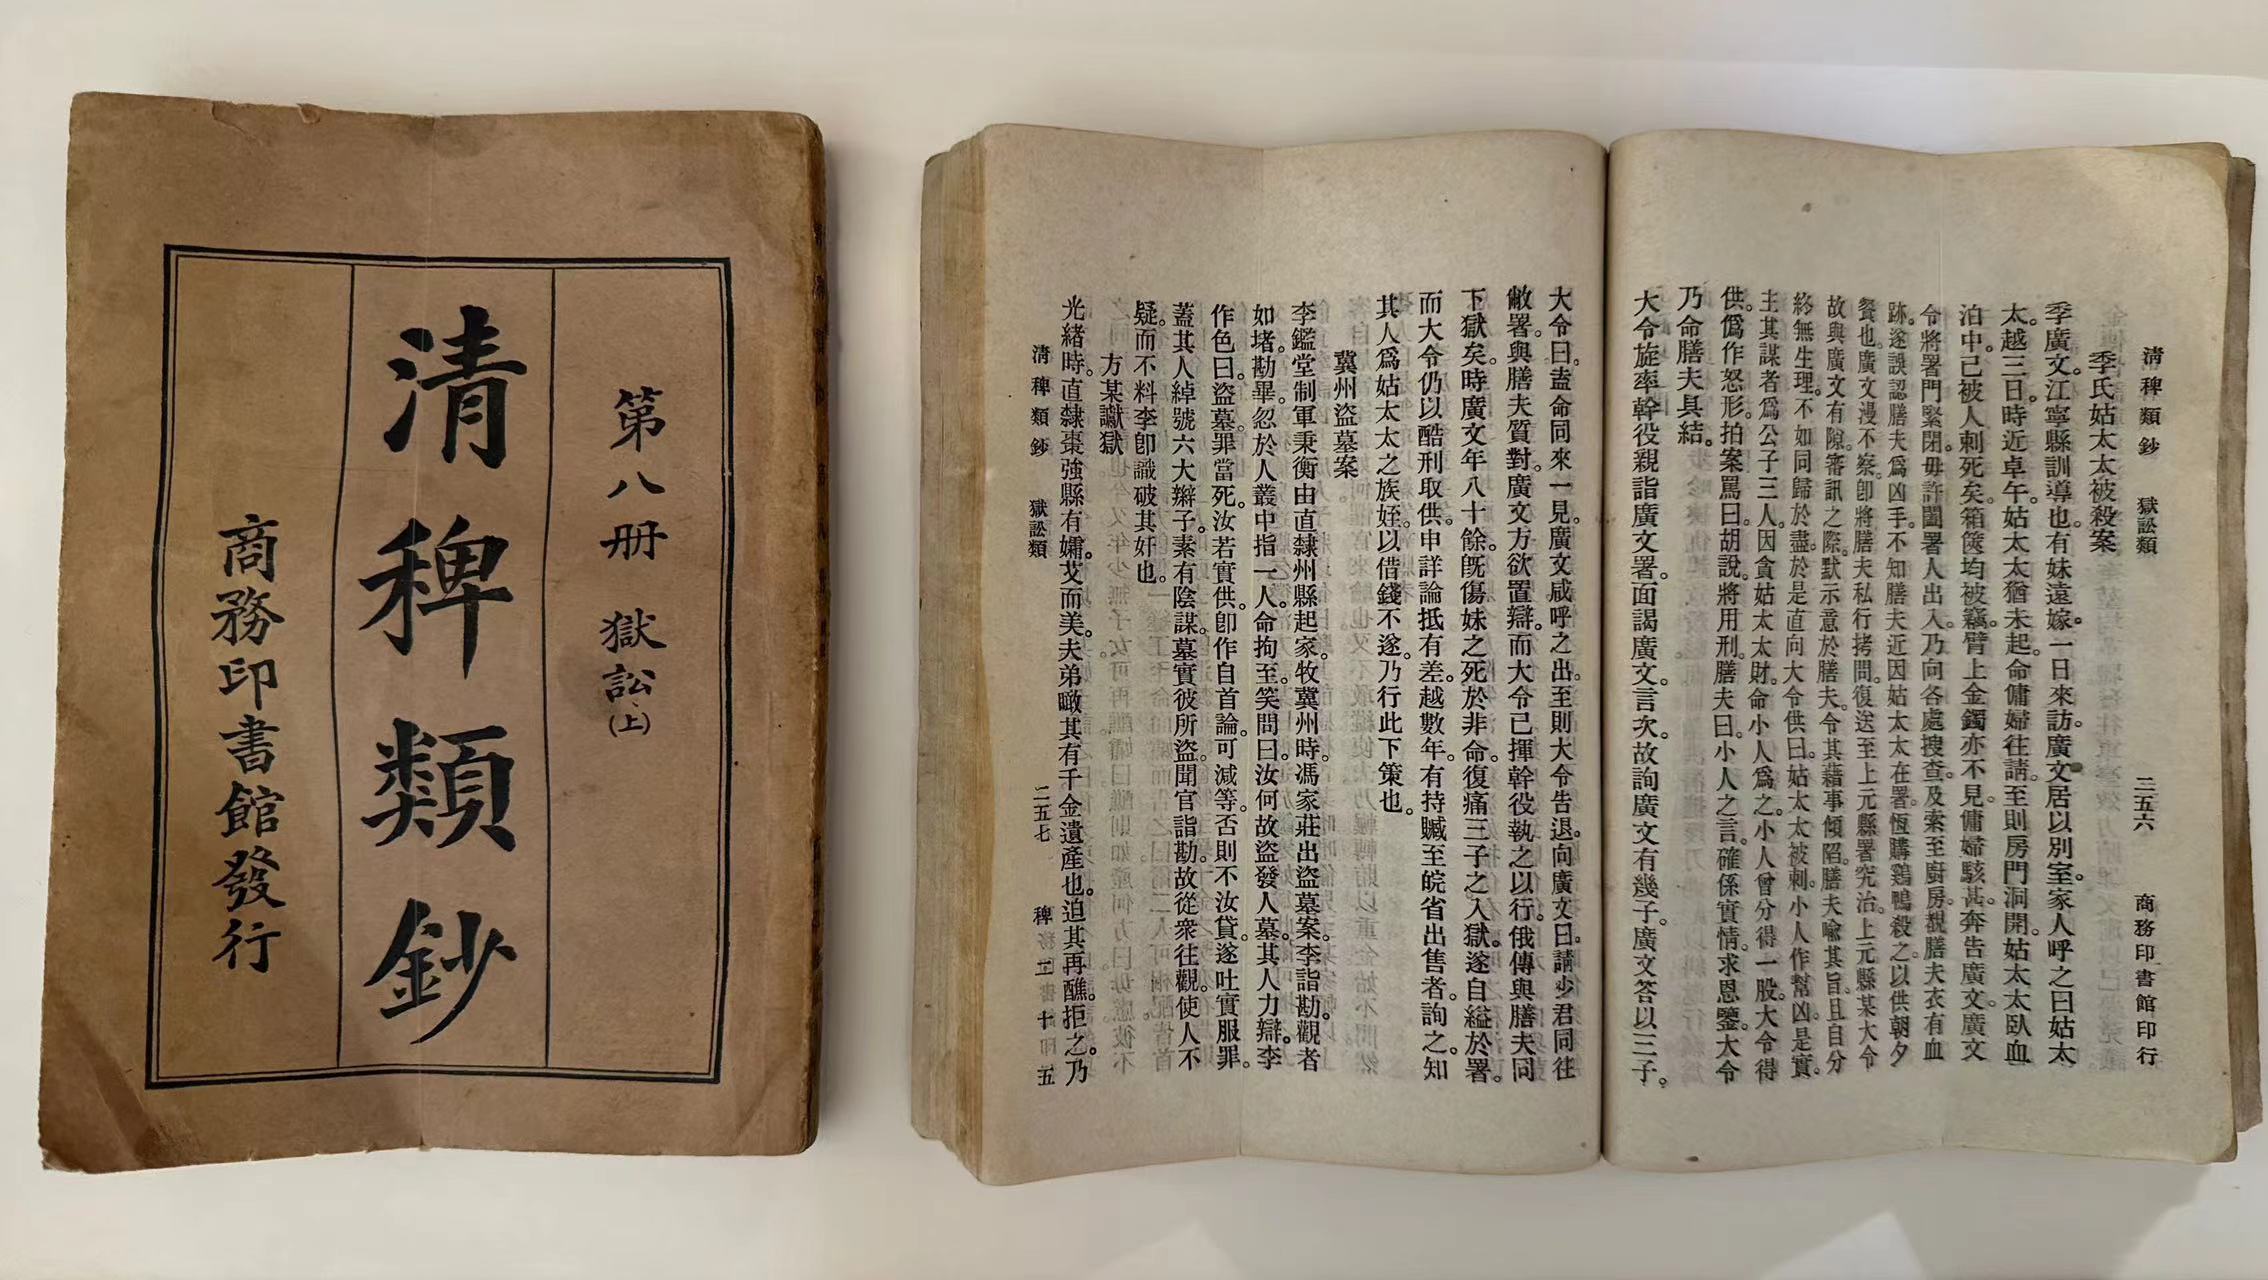 第八册 獄訟(上)
清稗類鈔
商務印書館發行
清稗類鈔 獄訟類 二五六 商務印書館印行
季氏姑太太被殺案
季廣文。江寧縣訓導也。有妹遠嫁。一日來訪。廣文居以別室。家人呼之曰姑太
太。越三日。時近卓午。姑太太猶未起。命傭婦往請。至則房門洞開。姑太太臥血
泊中。已被人刺死矣。箱篋均被竊。臂上金鐲亦不見。傭婦駭甚。奔告廣文。廣文
令將署門緊閉。毋許闔署人出入。乃向各處搜查。及索至廚房。覩膳夫衣有血
跡。遂誤認膳夫爲凶手。不知膳夫近因姑太太在署。恆購鷄鴨殺之。以供朝夕
餐也。廣文漫不察。卽將膳夫私行拷問。復送至上元縣署究治。上元縣某大令
故與廣文有隙。審訊之際。默示意於膳夫。令其藉事傾陷。膳夫喩其旨。且自分
終無生理。不如同歸於盡。於是直向大令供曰。姑太太被刺。小人作幫凶。是實
主其謀者爲公子三人。因貪姑太太財。命小人爲之。小人曾分得一股。大令得
供。僞作怒形。拍案罵曰。胡說。將用刑。膳夫曰。小人之言。確係實情。求恩鑒。大令
乃命膳夫具結。
大令旋率幹役親詣廣文署。面謁廣文。言次。故詢廣文有幾子。廣文答以三子。
大令曰。盍命同來一見。廣文咸呼之出。至則大令告退。向廣文曰。請少君同往
敝署。與膳夫質對。廣文方欲置辯。而大令已揮幹役執之以行。俄傳與膳夫同
下獄矣。時廣文年八十餘。旣傷妹之死於非命。復痛三子之入獄。遂自縊於署。
而大令仍以酷刑取供。申詳論抵有差。越數年。有持贓至皖省出售者。詢之。知
其人爲姑太太之族姪。以借錢不遂。乃行此下策也。
冀州盜墓案
李鑑堂制軍秉衡由直隸州縣起家。牧冀州時。馮家莊出盜墓案。李詣勘。觀者
如堵。勘畢。忽於人叢中指一人。命拘至。笑問曰。汝何故盜發人墓。其人力辯。李
作色曰。盜墓。罪當死。汝若實供。卽作自首論。可減等。否則不汝貸。遂吐實服罪。
蓋其人綽號六大辮子。素有陰謀。墓實彼所盜。聞官詣勘。故從衆往觀。使人不
疑。而不料李卽識破其奸也。
方某讞獄
光緒時。直隸棗強縣有孀。艾而美。夫弟瞰其有千金遺產也。迫其再醮。拒之。乃
清稗類鈔 獄訟類 二五七 稗二十五